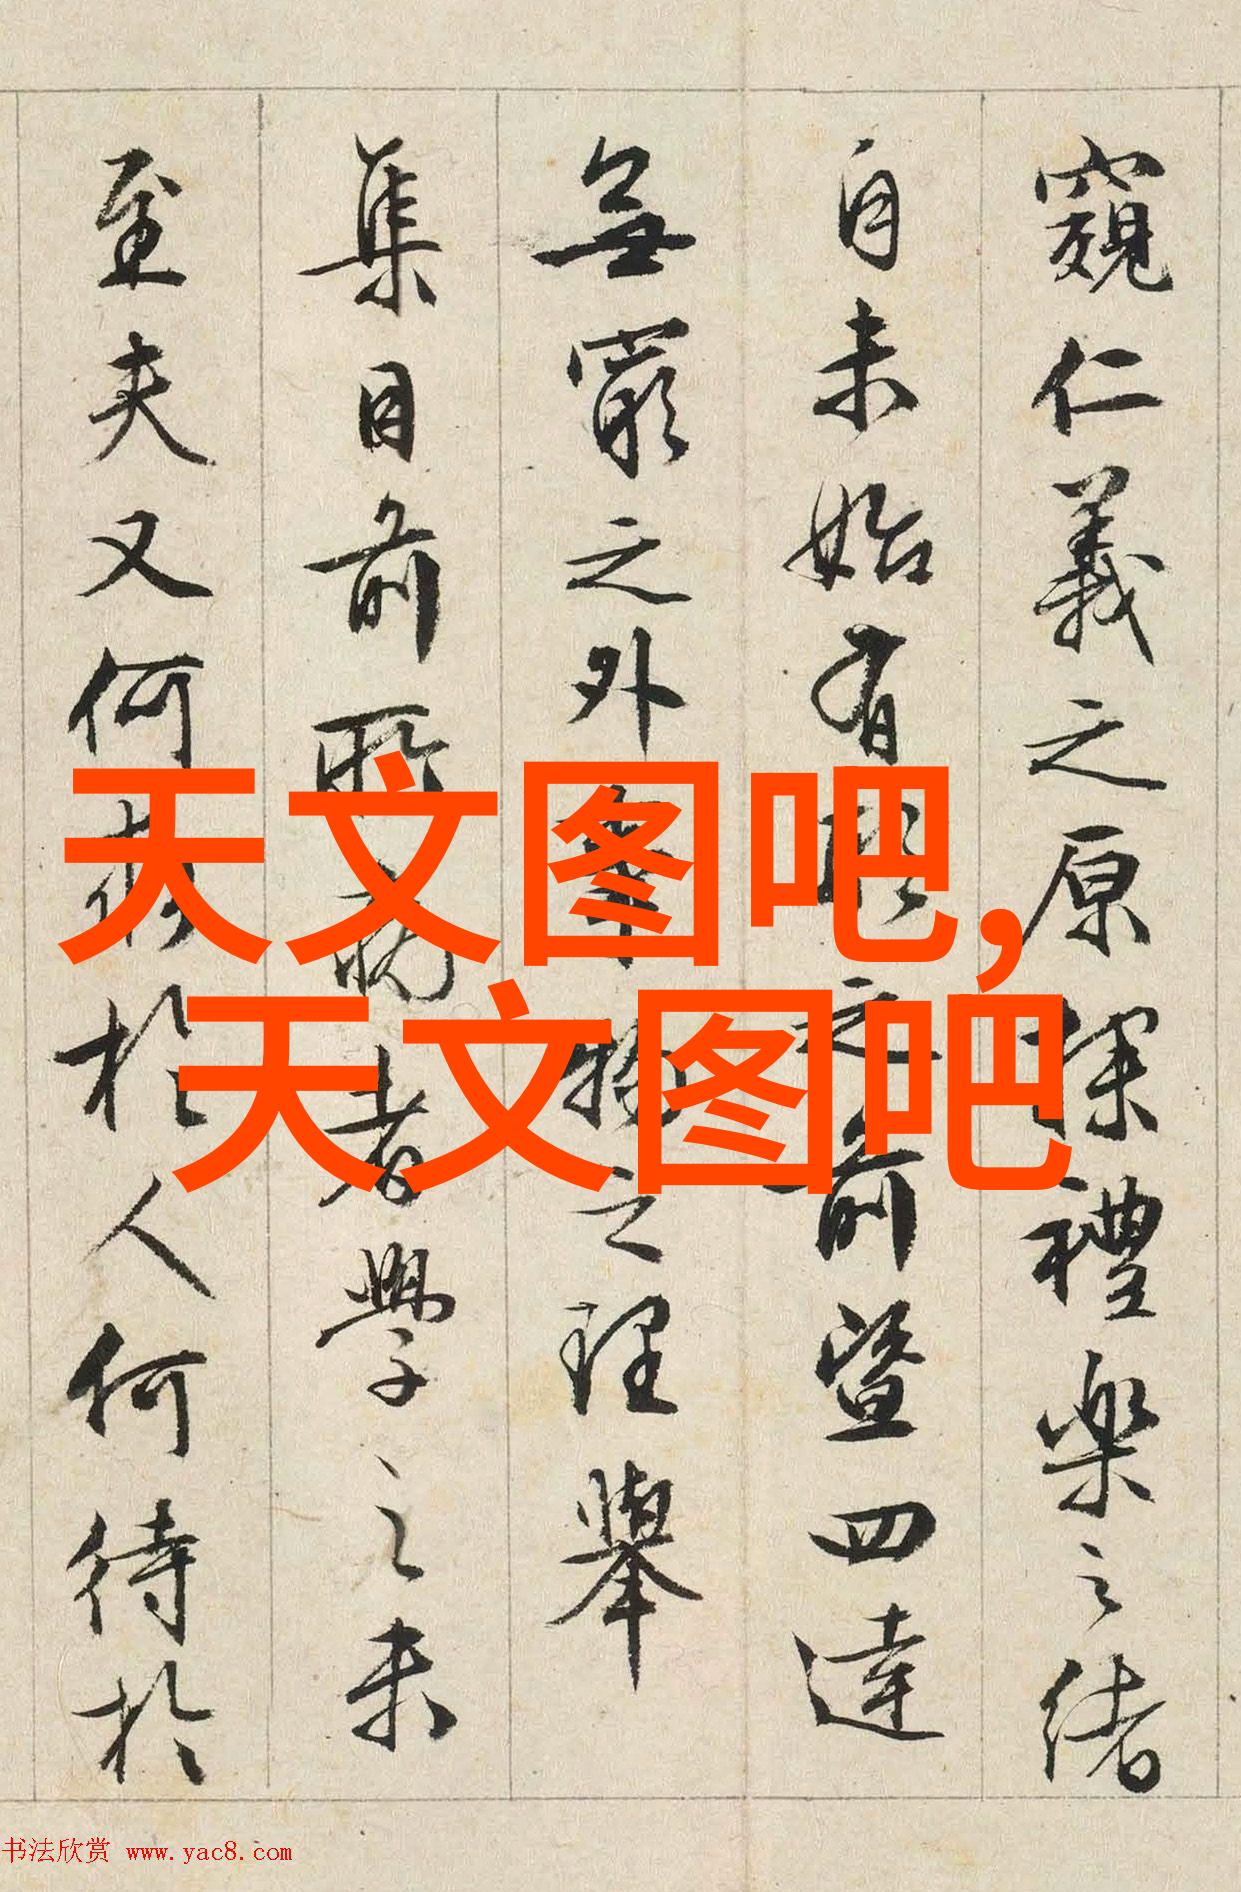 窺仁義之原探禮樂之緒
自未始有形之前暨四達
無窮之外事物之理舉
集目前所者學之未
至夫又何求於人何待於
天文图吧,
天文图吧
书法欣赏 www.yac8.com